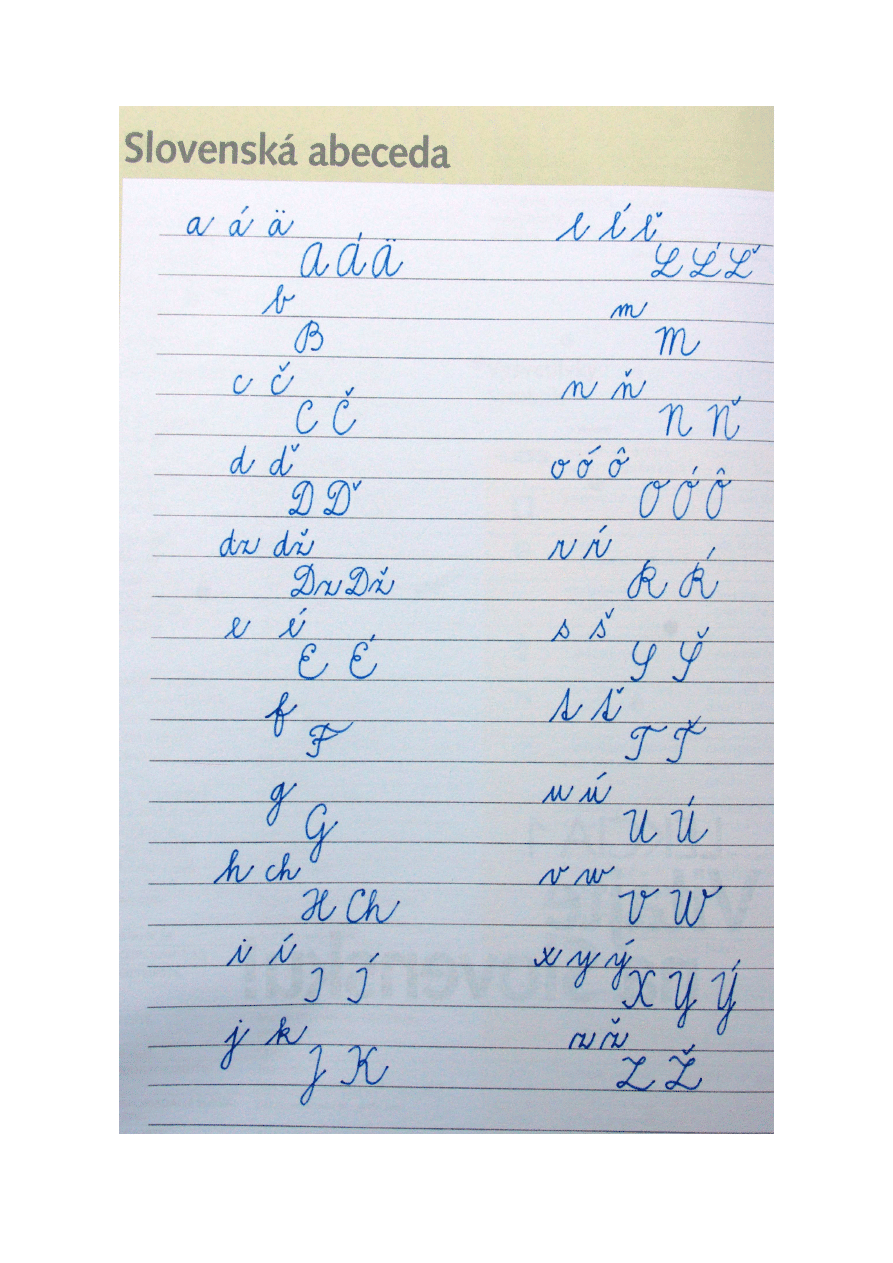 Slovenská abeceda
a á ä
A Á Ä
b
B
c č
C Č
d ď
D Ď
dz dž
Dz Dž
e é
E É
f
F
g
G
h ch
H Ch
i í
I Í
j k
J K
l ĺ ľ
L Ĺ Ľ
m
M
n ň
N Ň
o ó ô
O Ó Ô
r ŕ
R Ŕ
s š
S Š
t ť
T Ť
u ú
U Ú
v w
V W
x y ý
X Y Ý
z ž
Z Ž